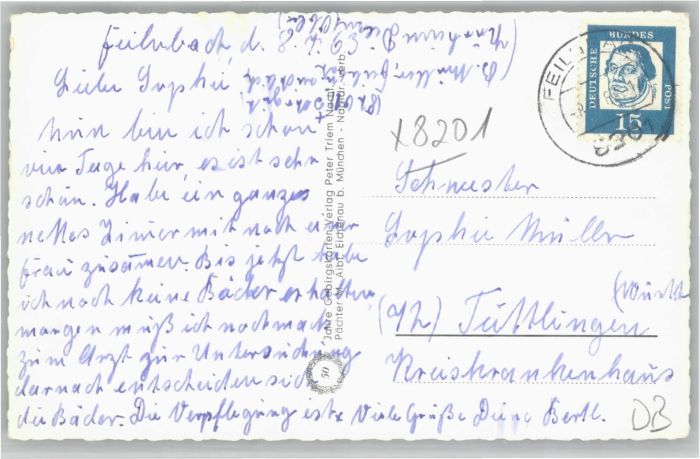 Feilnbach, d. 8.4.63
Liebe Sophie,
Nun bin ich schon
vier Tage hier, es ist sehr
schön. Habe ein ganzes
nettes Zimmer mit noch einer
Frau zusammen. Bis jetzt habe
ich noch keine Bäder erhalten,
morgen muß ich nochmals
zum Arzt zur Untersuchung
darnach entscheiden sich
die Bäder. Die Verpflegung ist Viele Grüße Deine Bertl.
50 Jahre Gebirgskarten-Verlag Peter Triem Nachf.
Pächter M. Aibl, Eichenau b. München - Nachdr. verb.
DEUTSCHE BUNDESPOST
15
FEILNBACH
8201
x8201
Schwester
Sophie Müller
(Württ)
Tuttlingen
Kreiskrankenhaus
DB